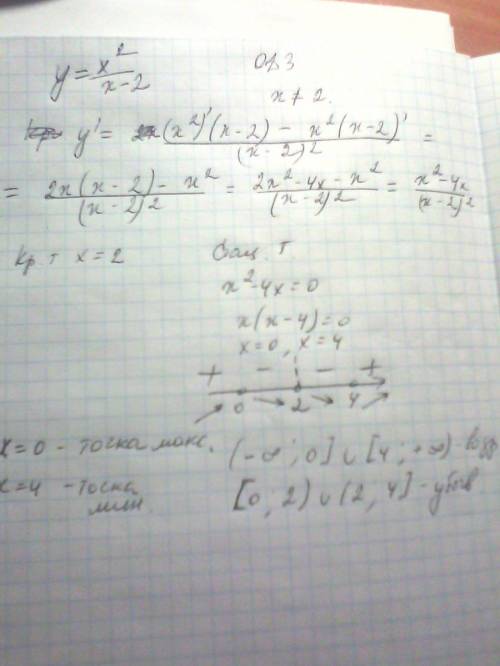 y = x²/(x-2) ОДЗ
x ≠ 2.
y' = (x²)'(x-2) - x²(x-2)' / (x-2)² =
= 2x(x-2) - x² / (x-2)² = 2x²-4x-x² / (x-2)² = x²-4x / (x-2)²
кр. т x = 2 Стац. т
x²-4x=0
x(x-4)=0
x=0, x=4
+ - - +
0 2 4
x=0 - точка макс. (-∞; 0] ∪ [4; +∞) - возр
x=4 - точка [0; 2) ∪ (2, 4] - убыв
мин.